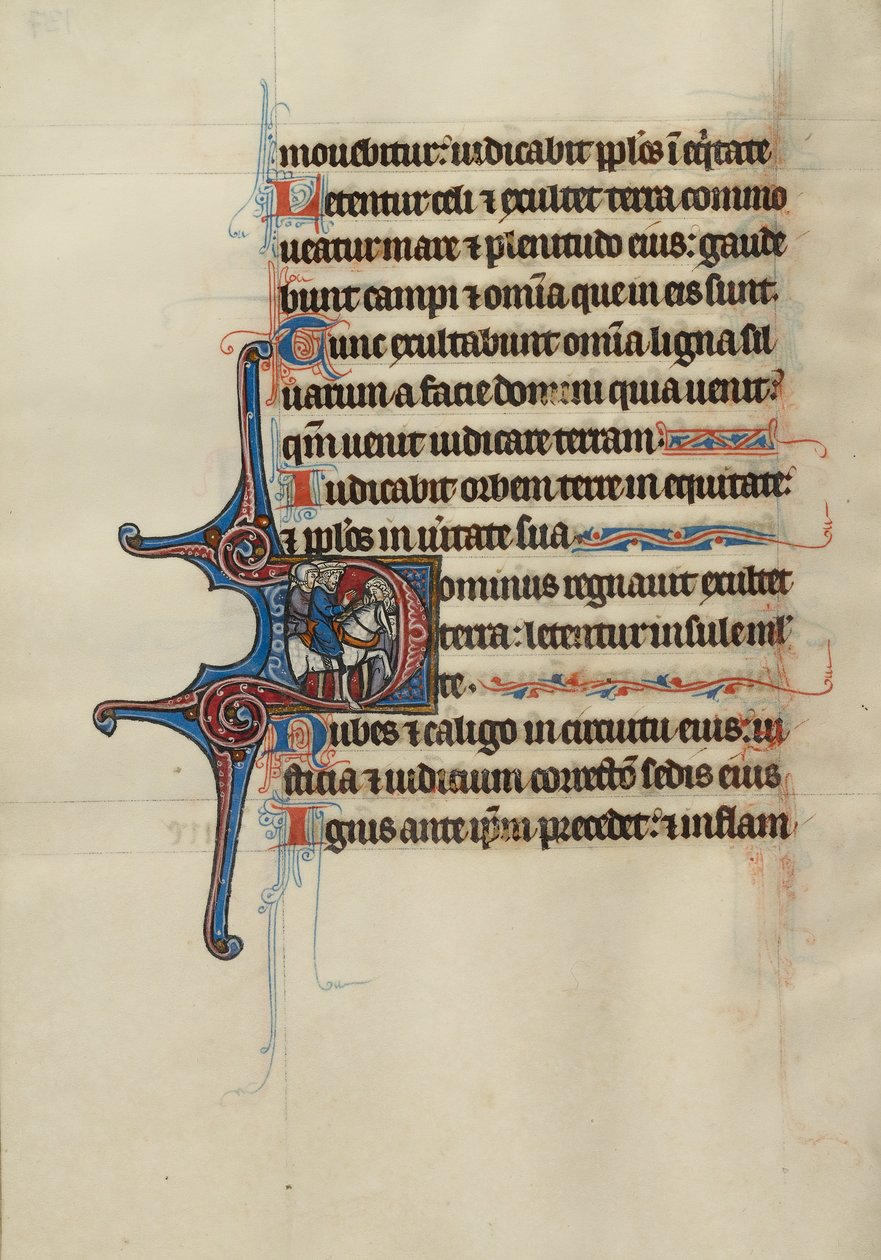 mouebitur: iudicabit ppl'os ī eq̇tate
Letentur celi ⁊ exultet terra commo
ueatur mare ⁊ plenitudo eius: gaude
bunt campi ⁊ om̄ia que in eis sunt.
Tunc exultabunt om̄ia ligna sil
uarum a facie domini quia uenit:
qm̄ uenit iudicare terram.
Iudicabit orbem terre in equitate:
⁊ ppl'os in u'itate sua.
Dominus regnauit exultet
terra: letentur insule ml'
te.
Nubes ⁊ caligo in circuitu eius: iu
sticia ⁊ iudicium correctō sedis eius
Ignis ante ip̄m precedet: ⁊ inflam